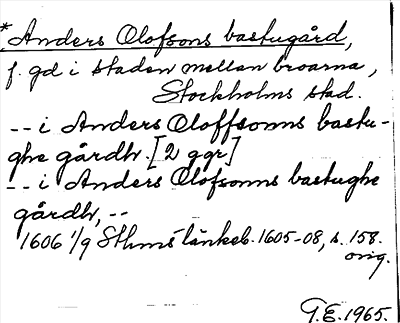 *Anders Olofsons bastugård,
f. gd i staden mellan broarna,
Stockholms stad.
-- i Anders Oloffsonns bastu-
ghe gårdh. [2 ggr.]
-- i Anders Olofsonns bastughe
gårdh, --
1606 1/9 Sthms tänkeb. 1605-08, s. 158.
orig.
T.E. 1965.